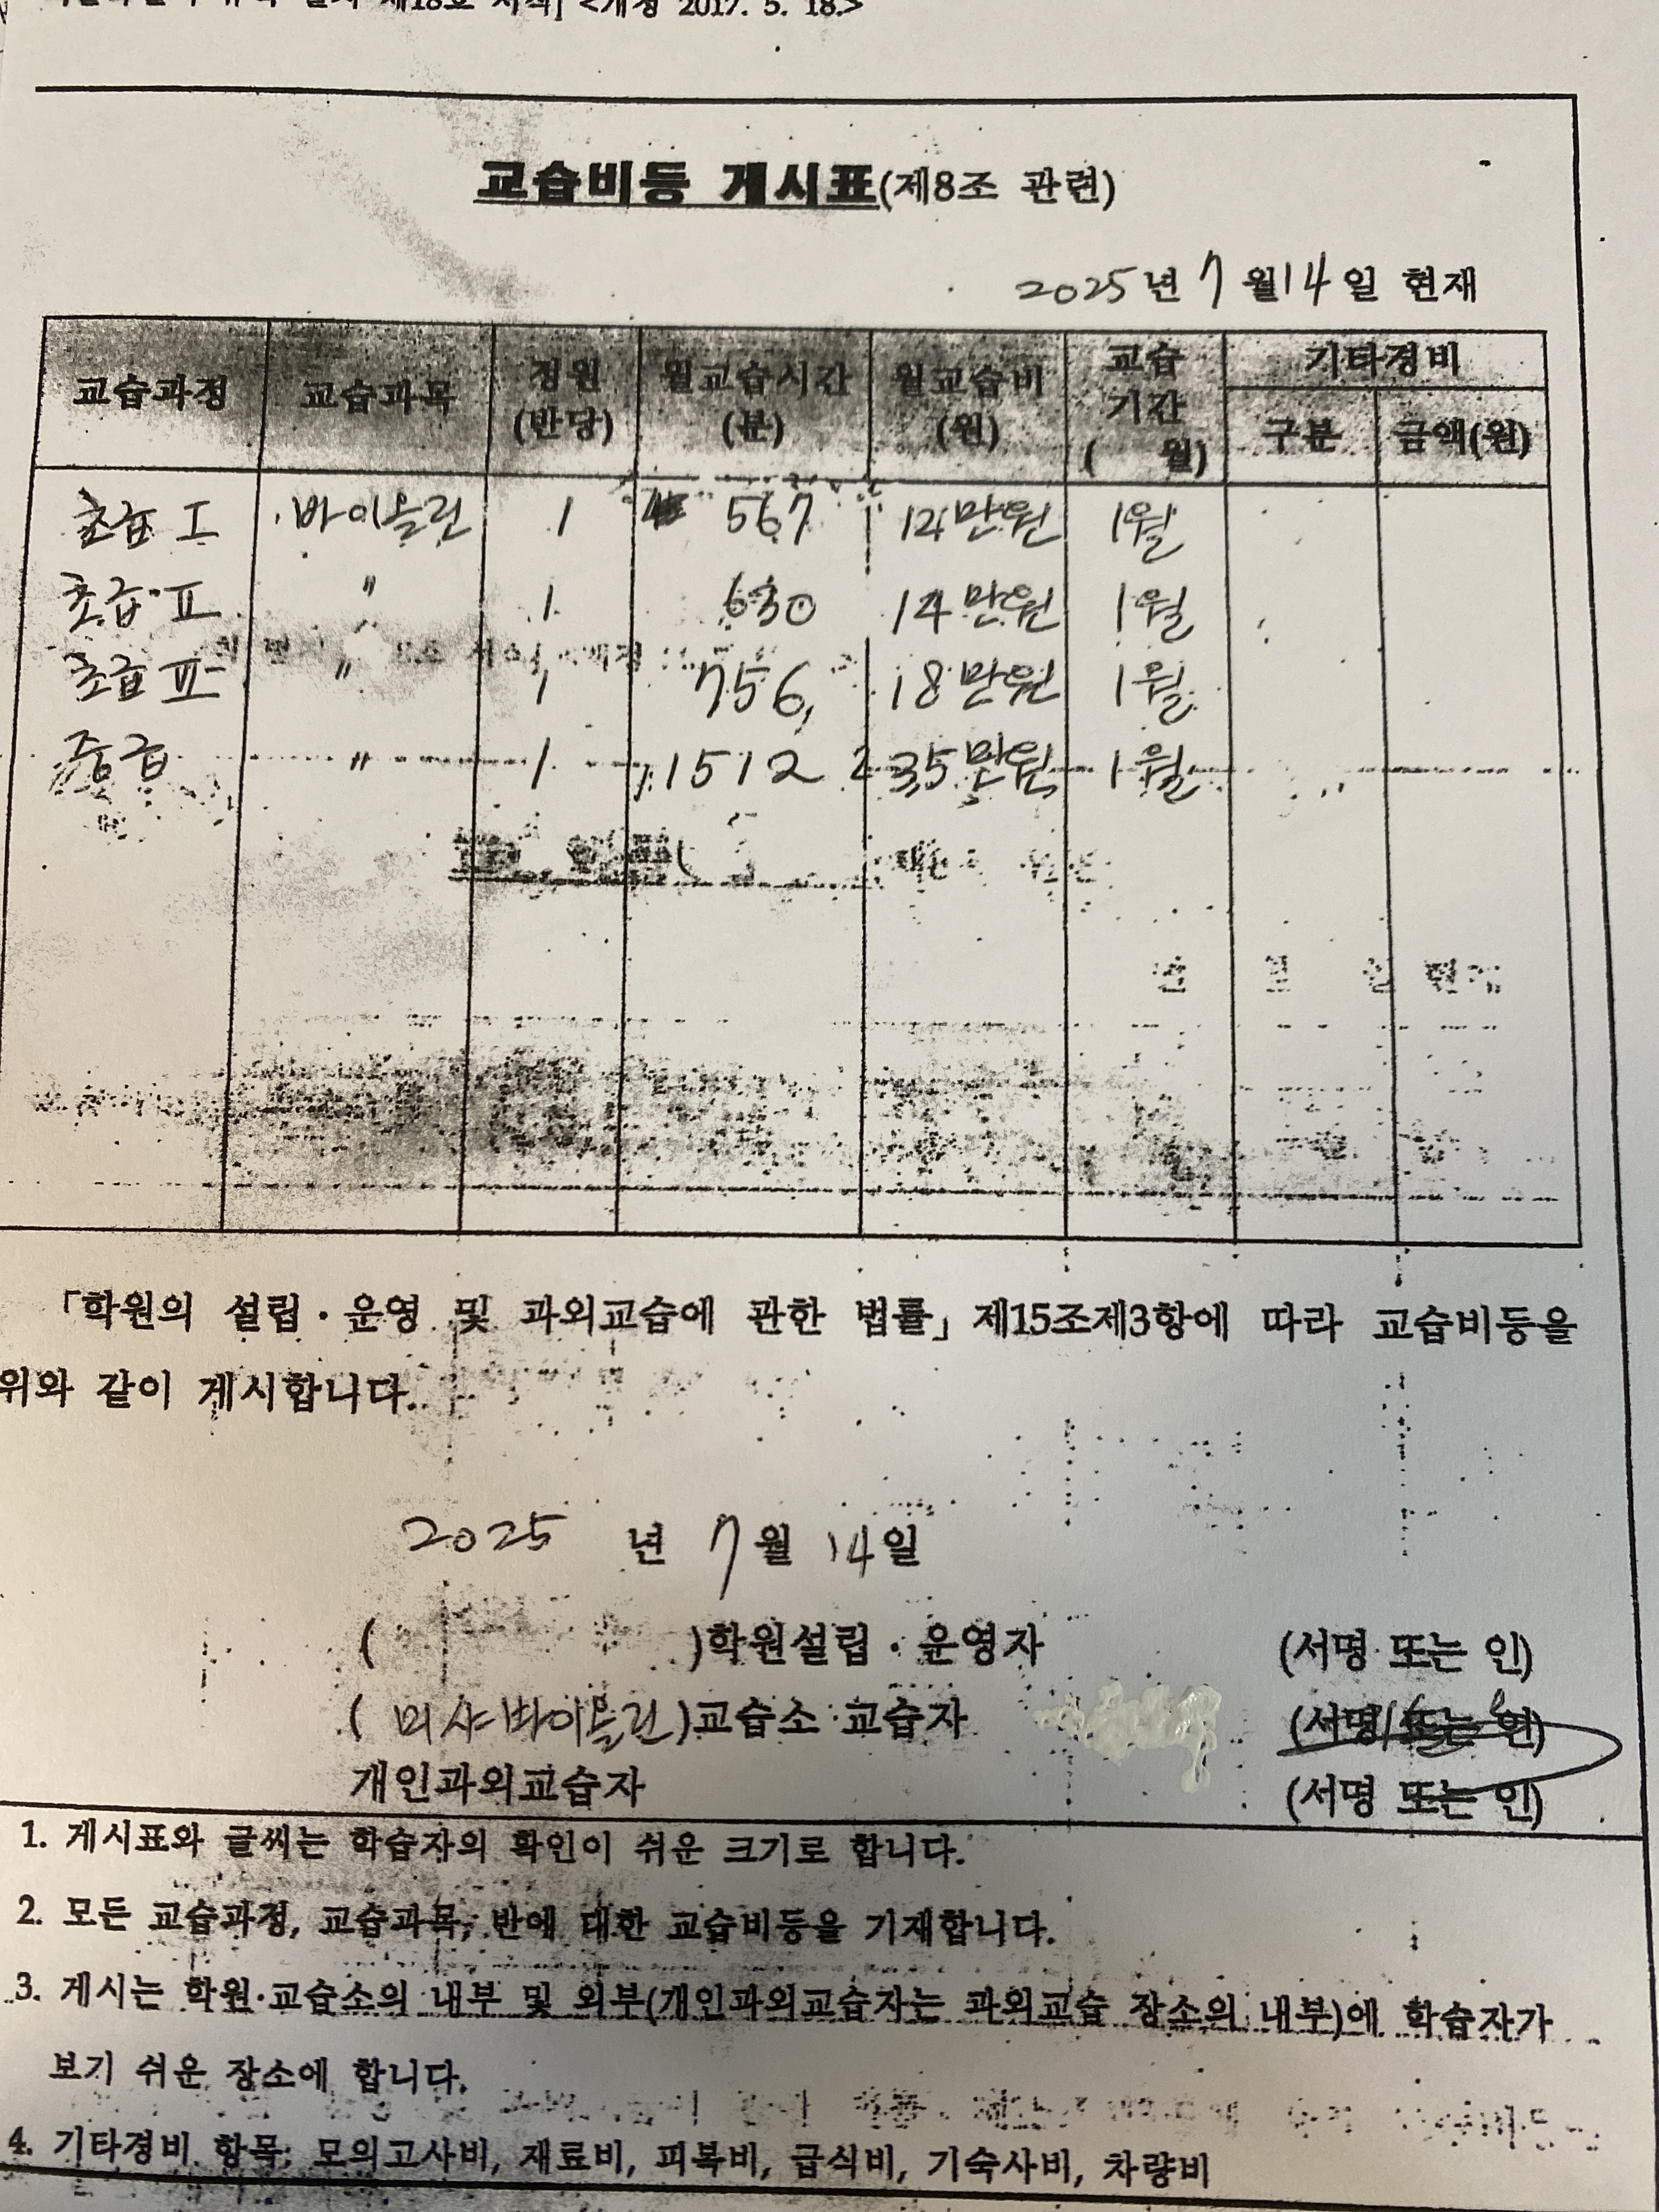 제18호 서식] <개정 2017. 5. 18.>
교습비등 게시표(제8조 관련)
2025년 7월 14일 현재
교습과정 교습과목 정원(반당) 월교습시간(분) 월교습비(원) 교습기간( 월) 기타경비 구분 금액(원)
초급 I 바이올린 1 567 만원 1월
초급 II " 1 630 14만원 1월
초급 III " 1 756 18만원 1월
중급 " 1 1512 35만원 1월
「학원의 설립·운영 및 과외교습에 관한 법률」 제15조제3항에 따라 교습비등을
위와 같이 게시합니다.
2025 년 7월 14일
( )학원설립·운영자 (서명 또는 인)
( 미샤바이올린)교습소 교습자 (서명 또는 인)
개인과외교습자 (서명 또는 인)
1. 게시표와 글씨는 학습자의 확인이 쉬운 크기로 합니다.
2. 모든 교습과정, 교습과목, 반에 대한 교습비등을 기재합니다.
3. 게시는 학원·교습소의 내부 및 외부(개인과외교습자는 과외교습 장소의 내부)에 학습자가
보기 쉬운 장소에 합니다.
4. 기타경비 항목: 모의고사비, 재료비, 피복비, 급식비, 기숙사비, 차량비